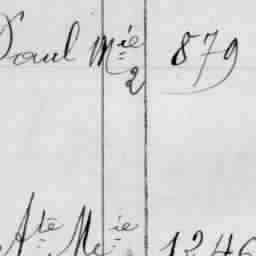 Paul Mie 879
2
Ate Mie 1246